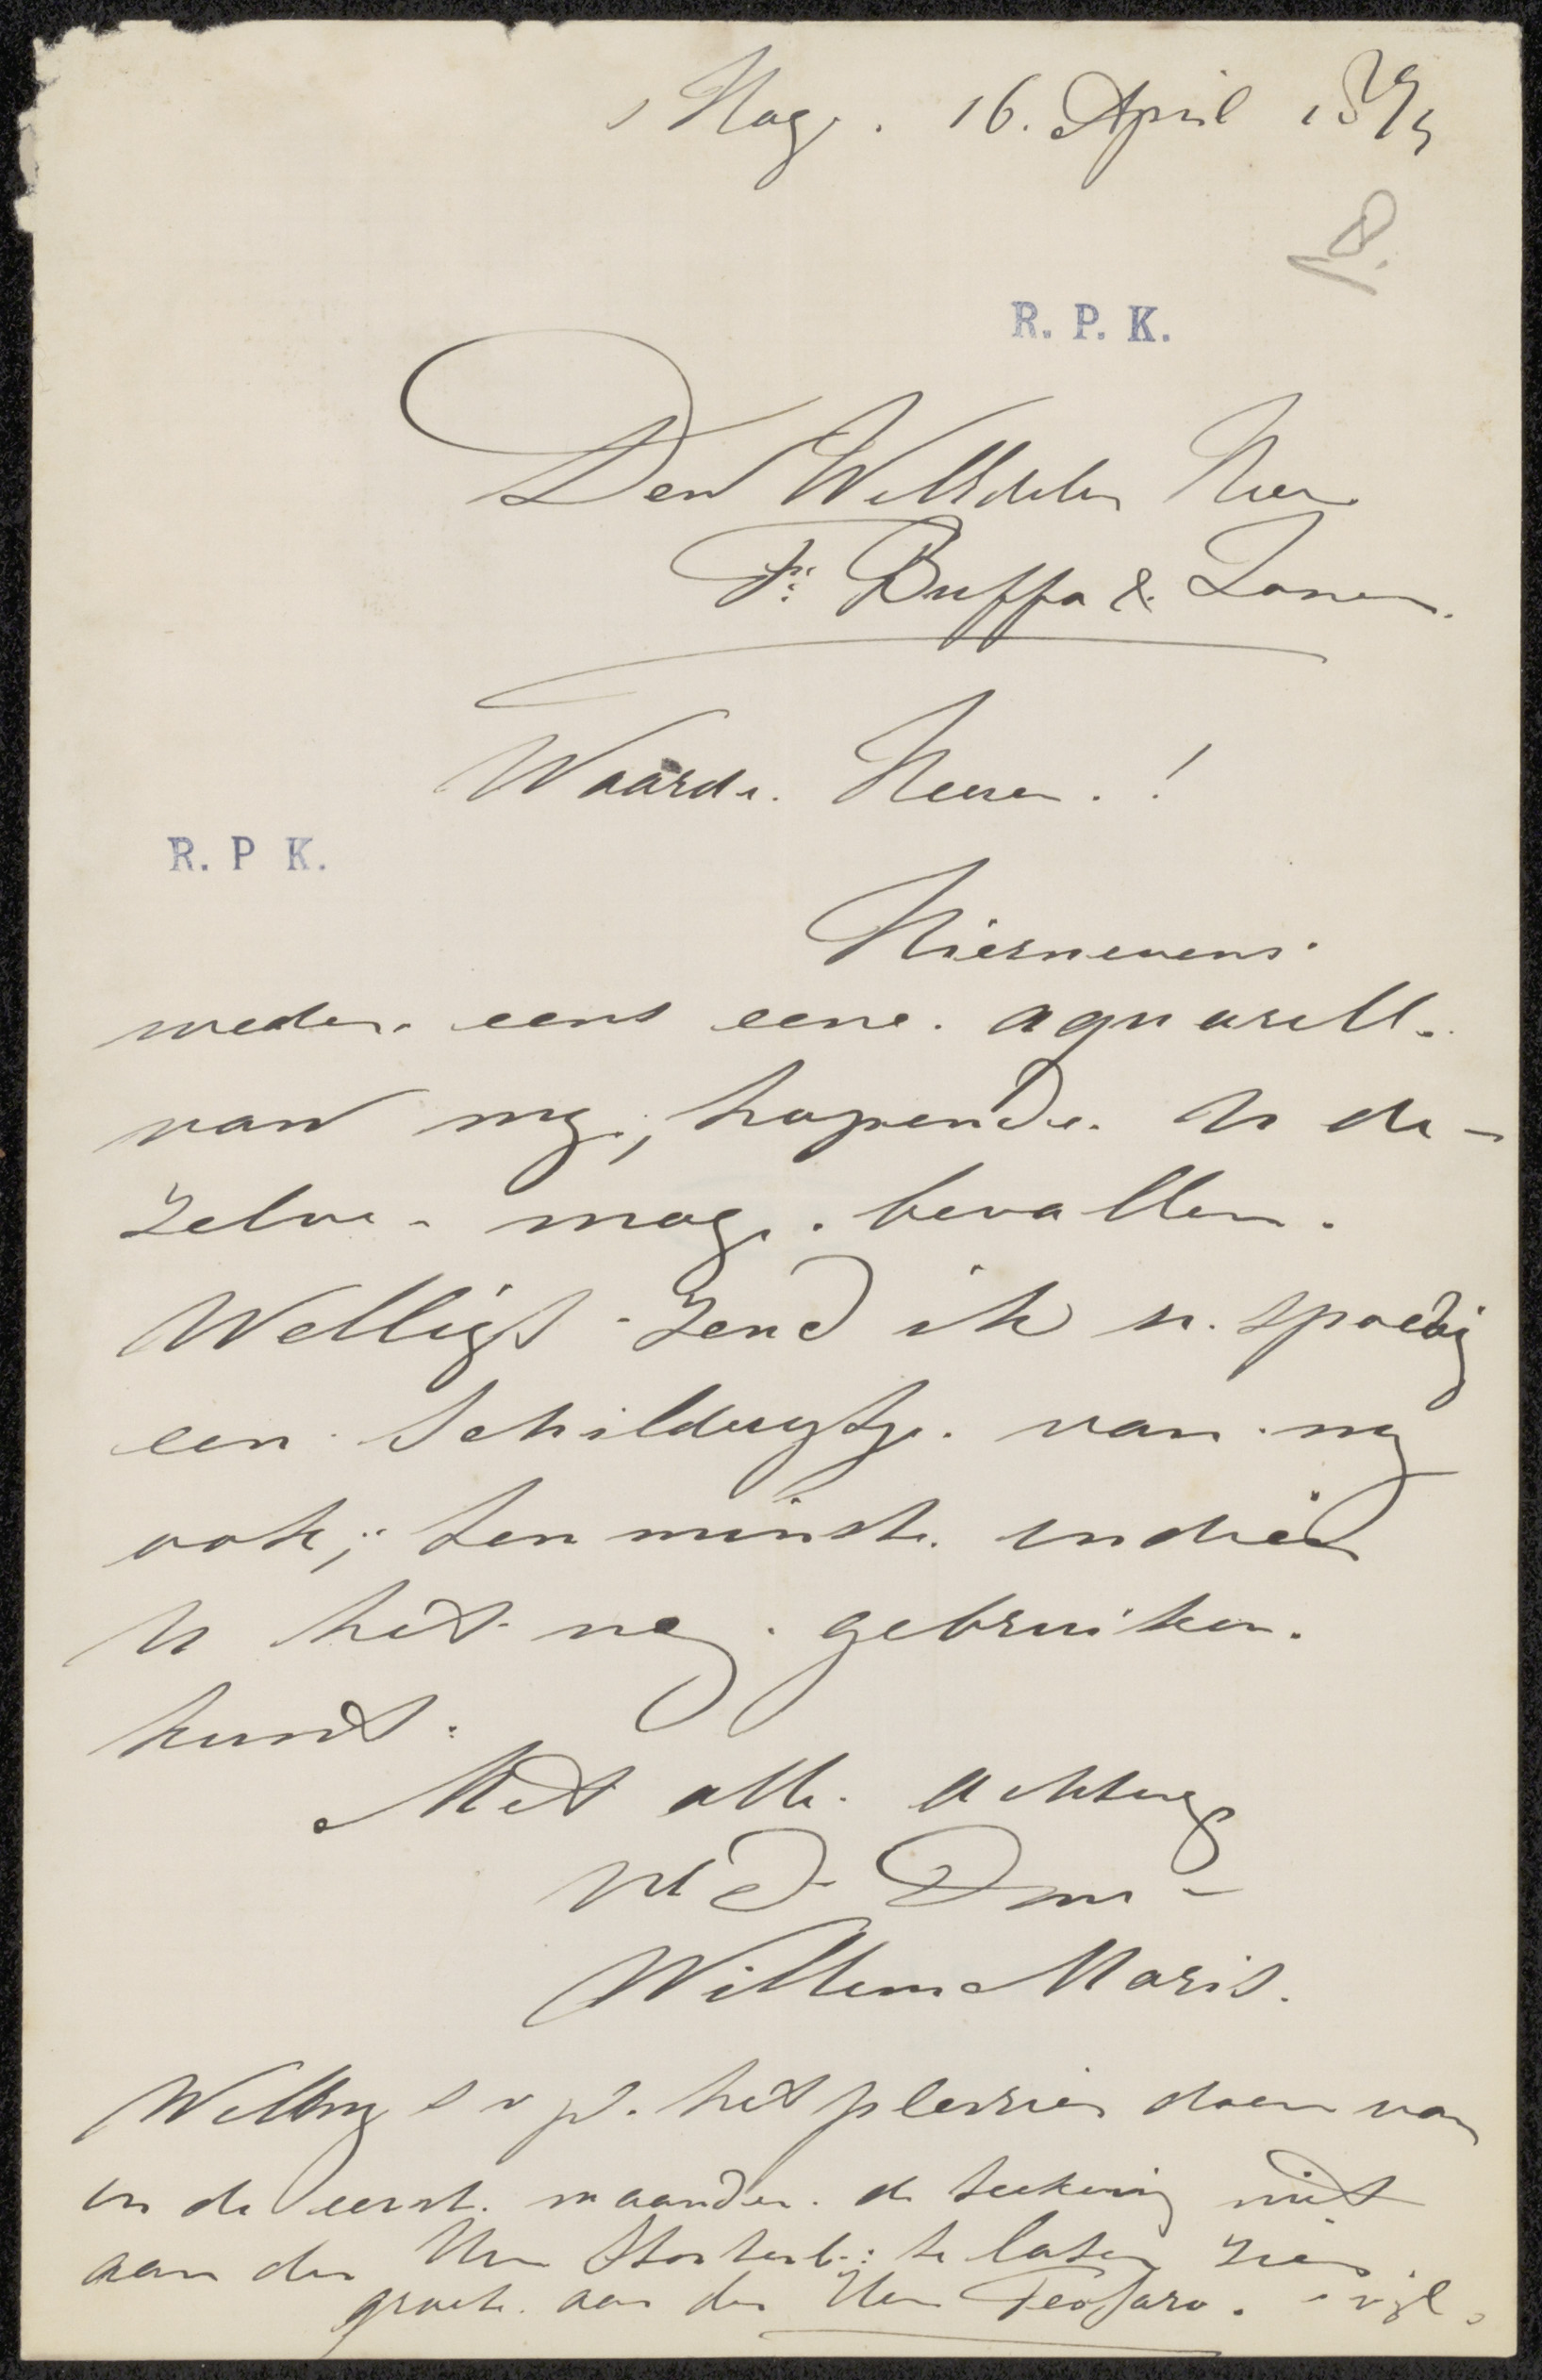 s Hage. 16. April 1875
8.
R. P. K.
Den WelEdelen Heer
Fr: Buffa & Zonen.
Waarde. Heeren. !
R. P K.
Hiernevens
weder. eens eene. aquarell.
van my, hopende. U de-
zelve. mag. bevallen.
Welligt zend ik u. spoedig
een Schilderytje. van my
ook; ten minste. indien
U het nog. gebruiken.
kunt.
Met alle. achting
UEd Dwe
Willem Maris.
Wilt my s v pl. het plessier doen van
in de eerste. maanden. de teekening niet
aan den Heer te laten zien
groete. aan den Heer